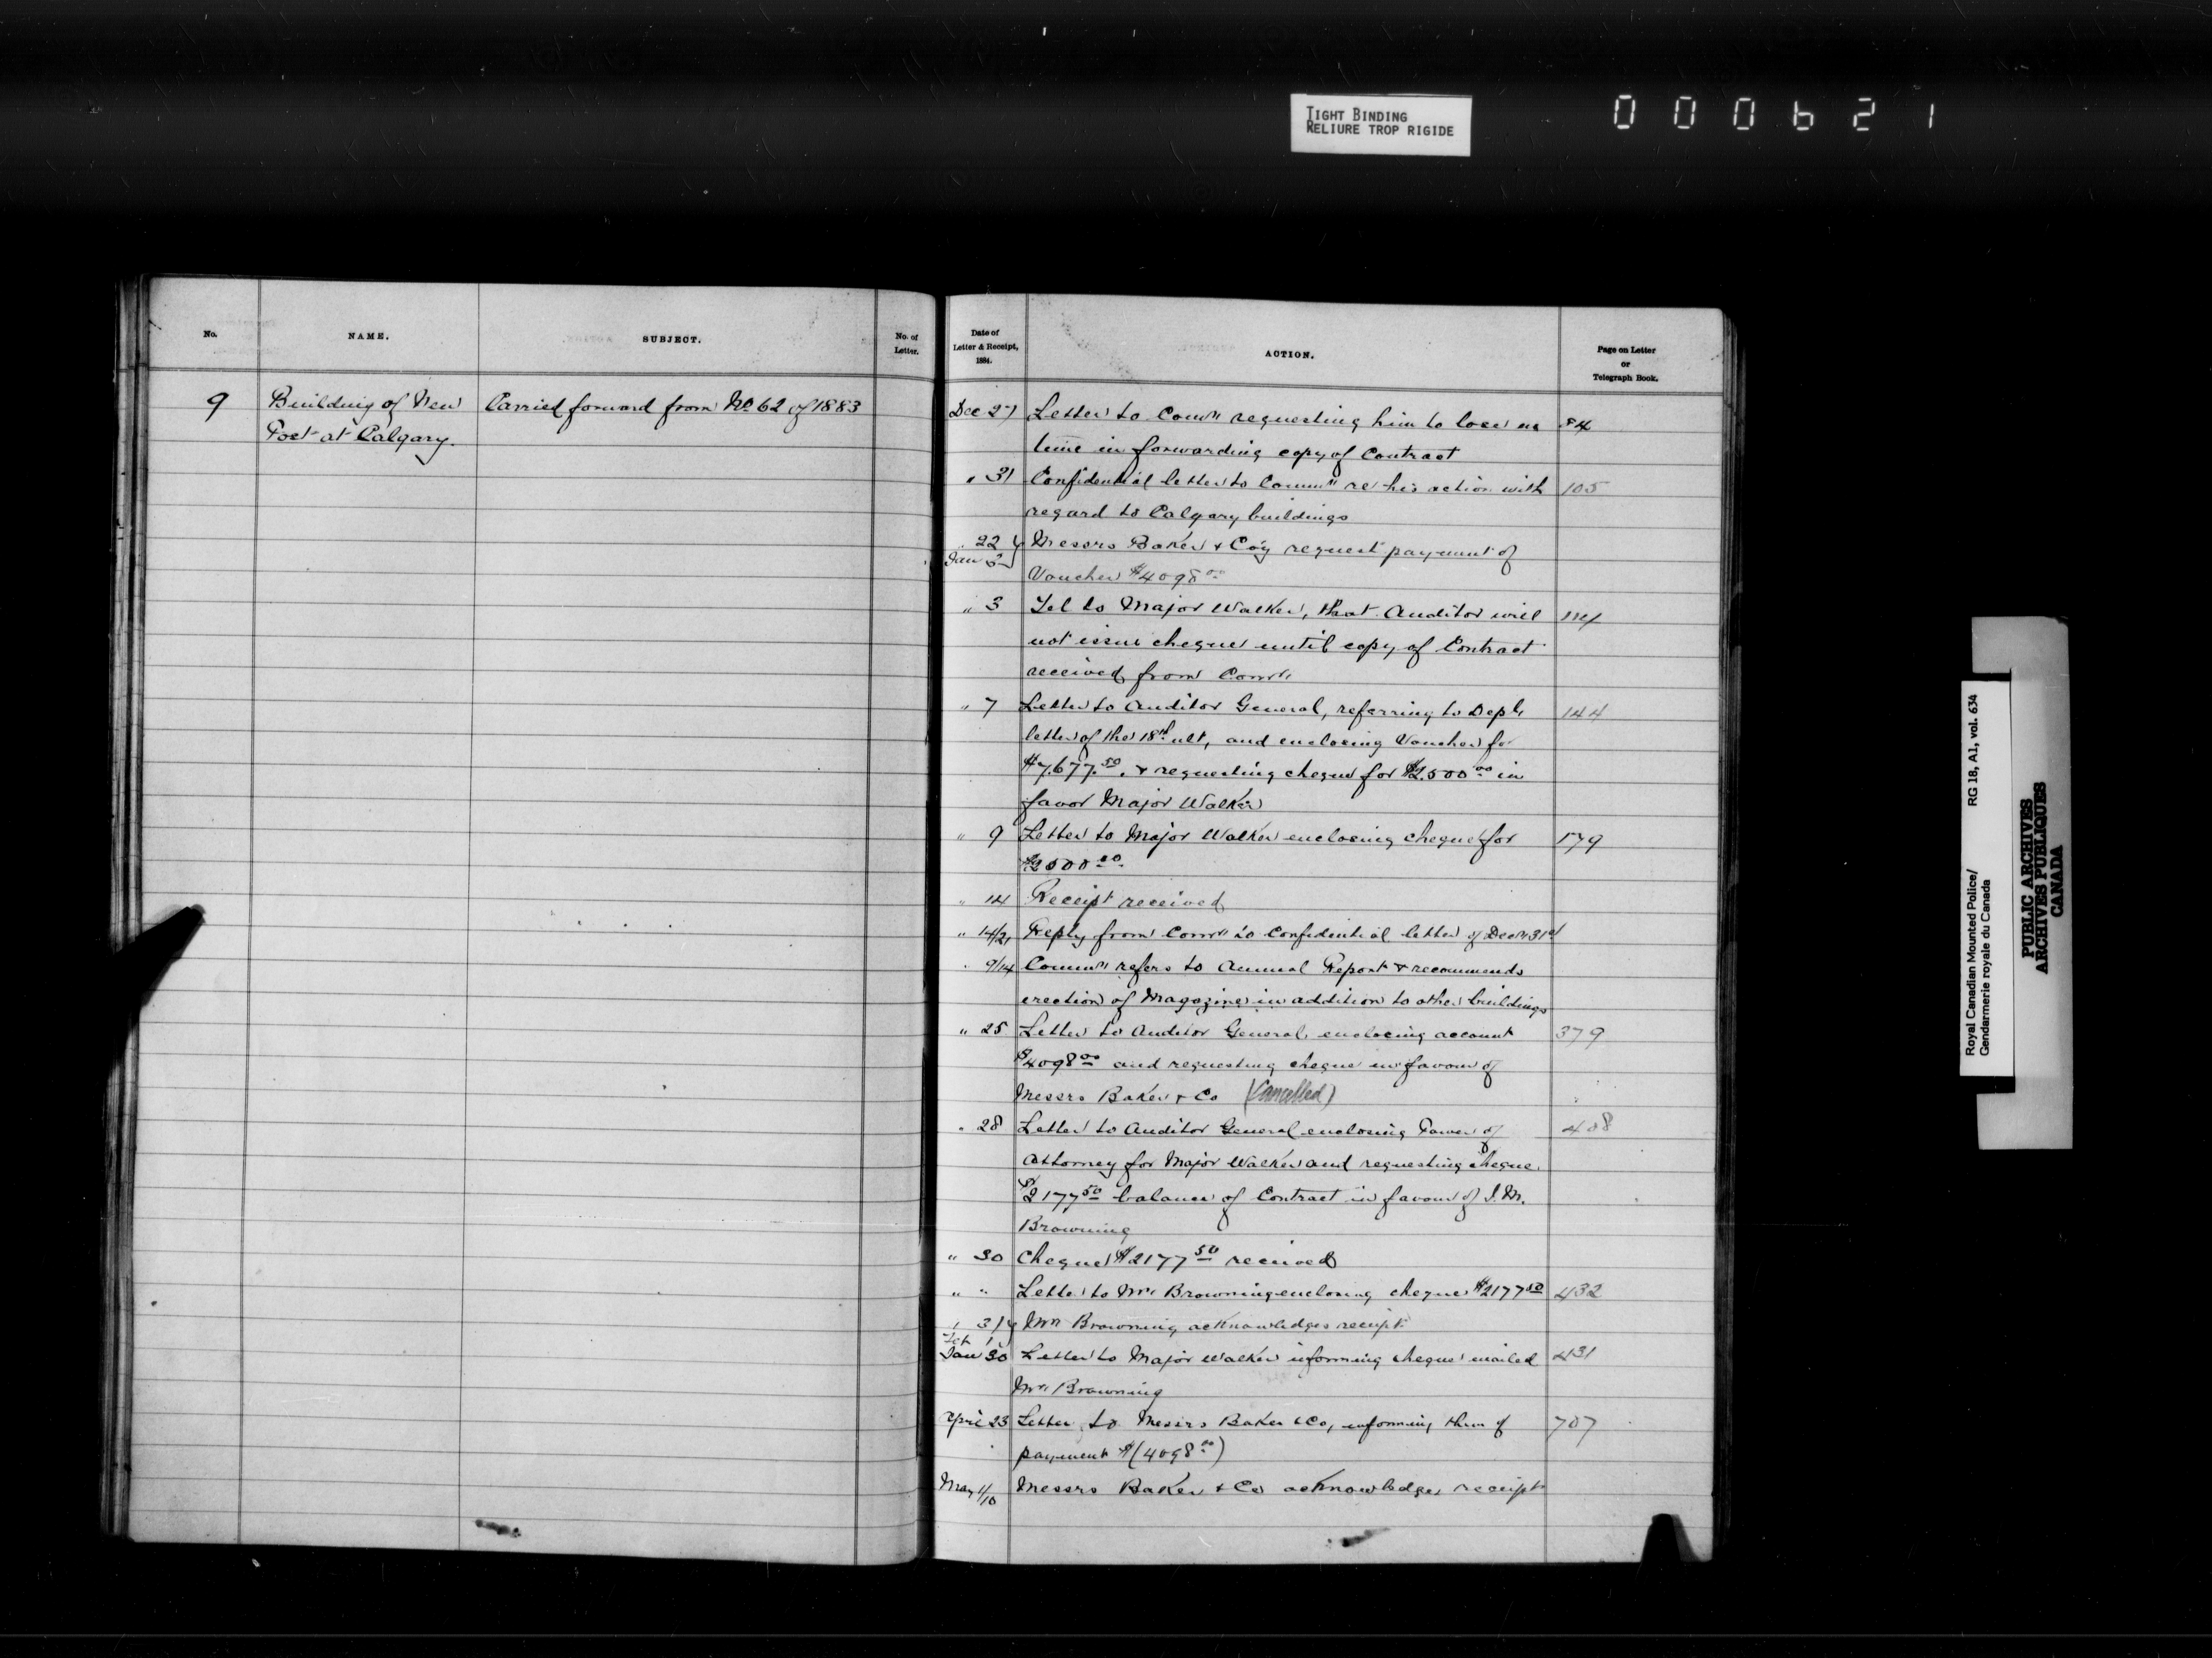 TIGHT BINDING
RELIURE TROP RIGIDE
000621
No.
NAME.
SUBJECT.
No. of
Letter.
9
Building of New
Post at Calgary.
Carried forward from No 62 of 1883
Date of
Letter & Receipt,
1884.
ACTION.
Page on Letter
or
Telegraph Book.
Dec 27 Letter to Comr requesting him to lose no 84
time in forwarding copy of Contract
" 31 Confidential letter to Commr re his action with 105
regard to Calgary buildings
" 22 Messrs Baker & Coy request payment of
Jan Voucher $4098 00
" 3 Tel to Major Walker, that Auditor will 114
not issue cheque until copy of Contract
received from Comr
" 7 Letter to Auditor General, referring to Dept 144
letter of the 18th ult, and enclosing Voucher for
$7.677.50. & requesting cheque for $2.500 00 in
favor Major Walker
" 9 Letter to Major Walker enclosing cheque for 179
$2500 00
" 14 Receipt received
" 14/21 Reply from Comr to Confidential letter of Decr 31st
" 9/14 Commr refers to Annual Report & recommends
erection of Magazine in addition to other buildings
" 25 Letter to Auditor General, enclosing account 379
$4098 00 and requesting cheque in favour of
Messrs Baker & Co (Cancelled)
" 28 Letter to Auditor General enclosing Power of 408
Attorney for Major Walker and requesting cheque
$2177 50 balance of Contract in favour of J. M.
Browning
" 30 Cheque $2177 50 received
" " Letter to Mr Browning enclosing cheque $2177 50 432
" 31 Mr Browning acknowledges receipt
Feb 1
Jan 30 Letter to Major Walker informing cheque mailed 431
Mr Browning
April 23 Letter to Messrs Baker & Co, informing them of 707
payment $(4098 00)
May 1/10 Messrs Baker & Co acknowledges receipt
Royal Canadian Mounted Police/
Gendarmerie royale du Canada
RG 18, A1, vol. 634
PUBLIC ARCHIVES
ARCHIVES PUBLIQUES
CANADA